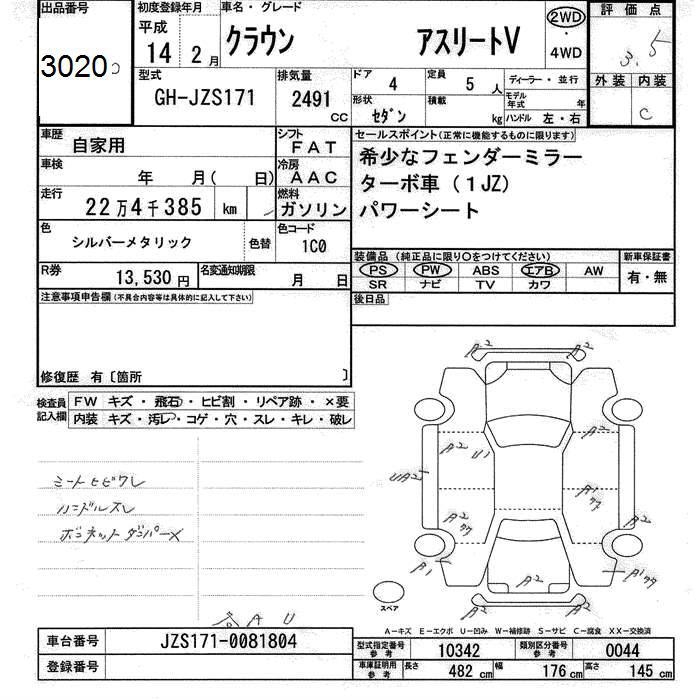 出品番号
3020
初度登録年月
平成
14 2 月
車名・グレード
クラウン アスリートV
2WD
・
4WD
評価点
3.5
外装 内装
C
型式
GH-JZS171
排気量
2491
CC
ドア 4
定員 5 人
形状 セダン
積載 kg
ディーラー・並行
モデル年式 年
ハンドル 左・右
車歴
自家用
シフト
FAT
車検
年 月( 日)
冷房
AAC
走行
22万4千385 km
燃料
ガソリン
色
シルバーメタリック
色替
色コード
1C0
R券
13,530 円
名変通知期限
月 日
セールスポイント(正常に機能するものに限ります)
希少なフェンダーミラー
ターボ車(1JZ)
パワーシート
装備品(純正品に限り○をつけてください)
PS PW ABS エアB AW
SR ナビ TV カワ
新車保証書
有・無
後日品
注意事項申告欄(不具合内容等は具体的に記入して下さい)
修復歴 有〔箇所 〕
検査員
記入欄
FW キズ・飛石・ヒビ割・リペア跡・×要
内装 キズ・汚レ・コゲ・穴・スレ・キレ・破レ
ハンドルスレ
ボンネットダンパー×
A2 A2
A2 U1
A2
UA2
A1
A2
A1
A2
A2
A2
スペア
A U
A-キズ E-エクボ U-凹み W-補修跡 S-サビ C-腐食 XX-交換済
車台番号
JZS171-0081804
登録番号
型式指定番号
参考
10342
類別区分番号
参考
0044
車庫証明用
参考
長さ 482 cm
幅 176 cm
高さ 145 cm